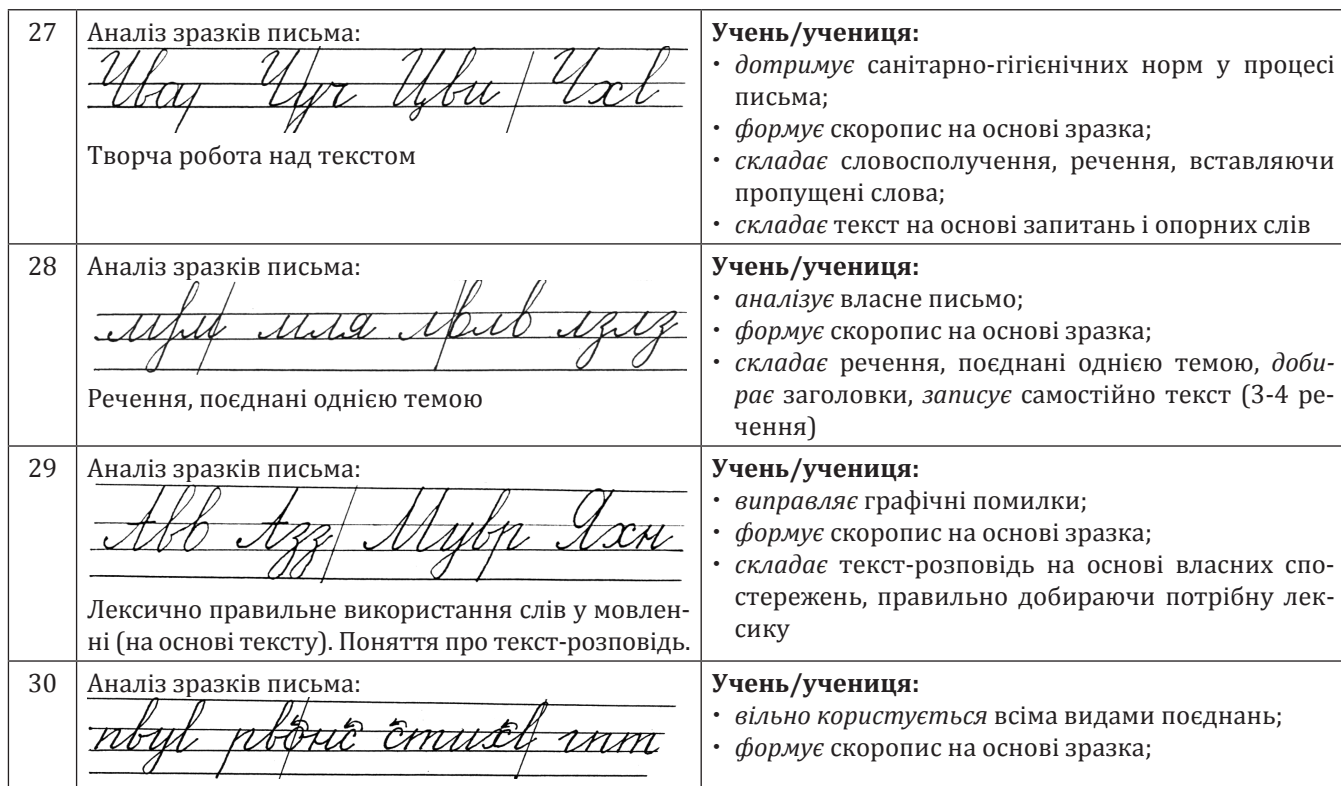 27
Аналіз зразків письма:
Творча робота над текстом
Учень/учениця:
• дотримує санітарно-гігієнічних норм у процесі
письма;
• формує скоропис на основі зразка;
• складає словосполучення, речення, вставляючи
пропущені слова;
• складає текст на основі запитань і опорних слів
28
Аналіз зразків письма:
мля
Речення, поєднані однією темою
Учень/учениця:
• аналізує власне письмо;
• формує скоропис на основі зразка;
• складає речення, поєднані однією темою, доби-
рає заголовки, записує самостійно текст (3-4 ре-
чення)
29
Аналіз зразків письма:
Авв Азз Мувр Яхн
Лексично правильне використання слів у мовлен-
ні (на основі тексту). Поняття про текст-розповідь.
Учень/учениця:
• виправляє графічні помилки;
• формує скоропис на основі зразка;
• складає текст-розповідь на основі власних спо-
стережень, правильно добираючи потрібну лек-
сику
30
Аналіз зразків письма:
гпт
Учень/учениця:
• вільно користується всіма видами поєднань;
• формує скоропис на основі зразка;